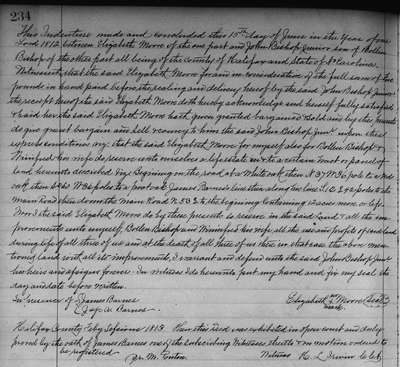 234
This Indenture made and concluded this 15th day of June in the Year of our
Lord 1812 between Elizabeth Moore of the one part and John Bishop Junior son of Bollen
Bishop of the other part all being of the County of Halifax and State of N Carolina,
Witnesseth, that she said Elizabeth Moore for and in consideration of the full sum of two
pounds in hand paid before the sealing and delivery hereof by the said John Bishop Junior
the receipt hereof she said Elizabeth Moore doth hereby acknowledge and herself fully satisfied
& paid her she said Elizabeth Moore hath given granted bargained & sold and by these presents
do give grant bargain and sell & convey to him the said John Bishop Junr upon these
express conditions viz: that she said Elizabeth Moore for myself also for Bollen Bishop &
Winnifred his wife do reserve unto ourselves a life estate in & to a certain tract or parcel of
land hereunto described viz Beginning on the road at a White oak then N 37 W 36 pole to a Red
oak then S 63 W 86 poles to a post oak James Barnes's line then along his line S 18 E 42 poles to the
main Road then down the main Road N 53 E to the beginning Containing 12 acres more or less.
Now I the said Elizabeth Moore do by these presents so reserve in the said Land & all the im-
provements unto myself, Bollen Bishop and Winnifred his wife all the use and profits of said land
during life of all three of us and at the death of all three of us then in that case the above men-
tioned Land with all its improvements, I warrant and defend unto the said John Bishop Junr
his heirs and assigns forever. In witness I do hereunto put my hand and for my seal the
day and date before written.
In presence of James Barnes
Elizabeth her Moore (Seal)
mark
Jas A. Barnes.
Halifax County Feby Sessions 1813. Then this Deed was exhibited in open court and duly
proved by the oath of James Barnes one of the subscribing Witnesses thereto & on motion ordered to
be registered
Witness